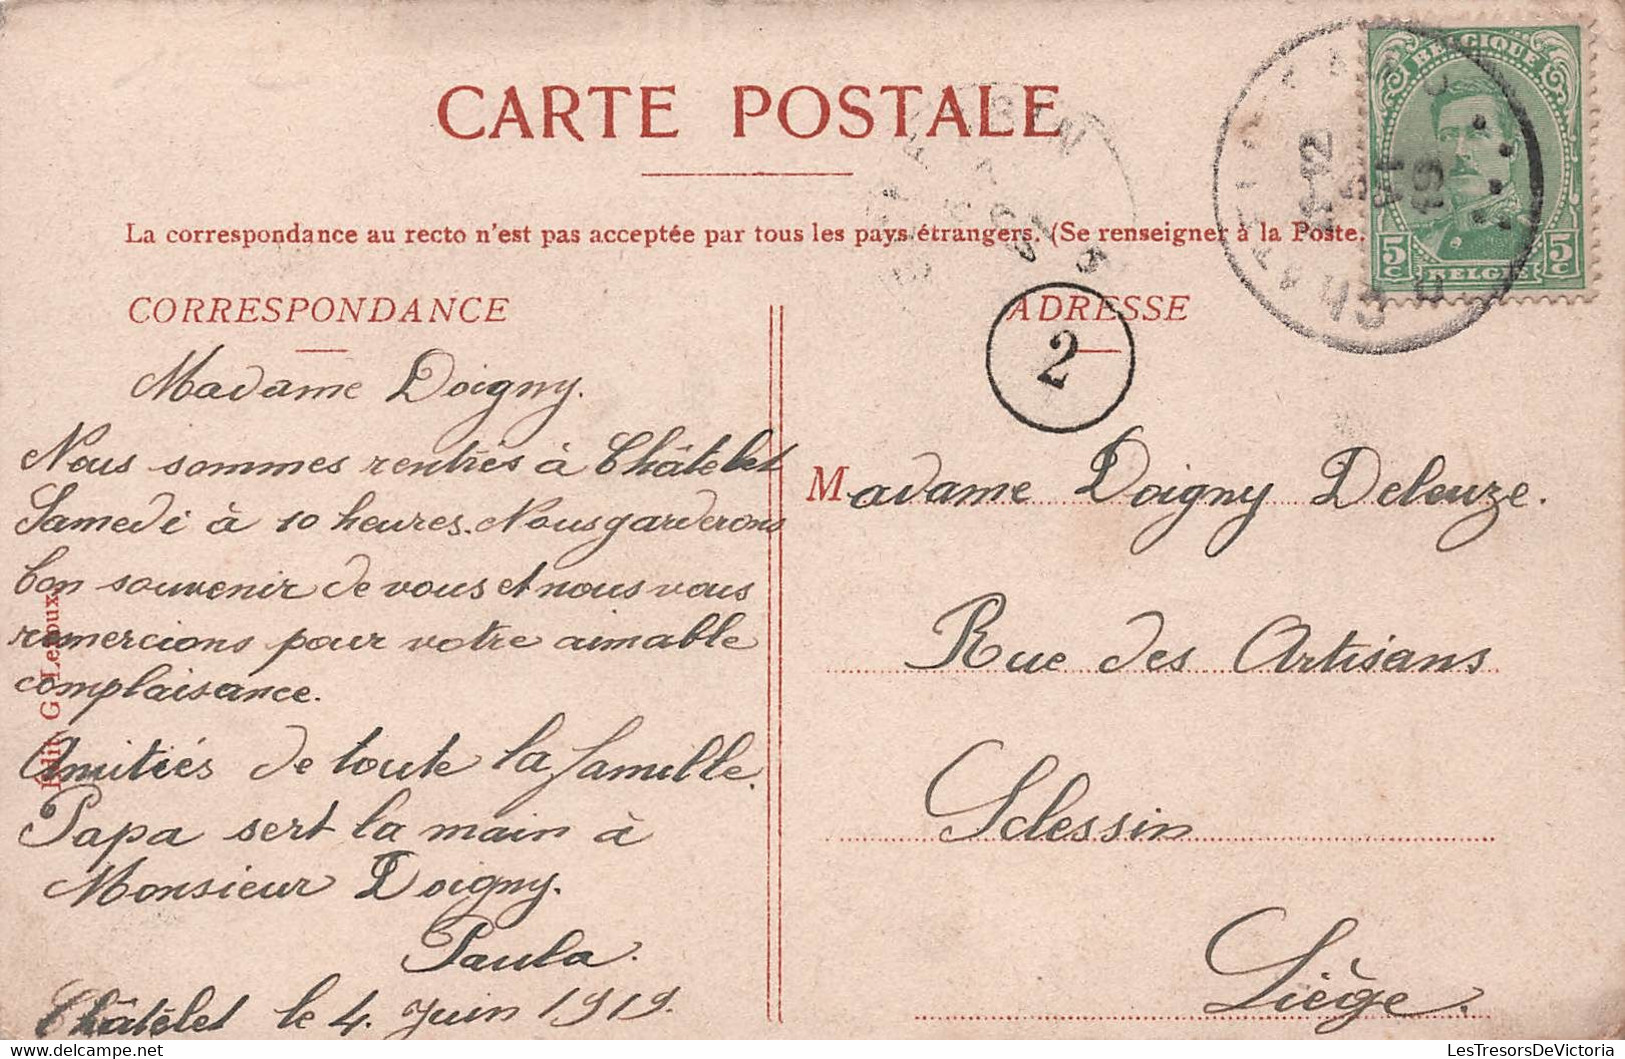 CARTE POSTALE
La correspondance au recto n'est pas acceptée par tous les pays étrangers. (Se renseigner à la Poste.
CORRESPONDANCE
Madame Doigny.
Nous sommes rentrés à Châtelet
Samedi à 10 heures. Nous garderons
bon souvenir de vous et nous vous
remercions pour votre aimable
complaisance.
Amitiés de toute la famille.
Papa sert la main à
Monsieur Doigny.
Paula.
Châtelet le 4 Juin 1919.
Edit. G.
ADRESSE
2
Madame Doigny Deleuze.
Rue des Artisans
Sclessin
Liège.
BELGIQUE
5c 5c
BELGIE
11-12
19
LesTresorsDeVictoria